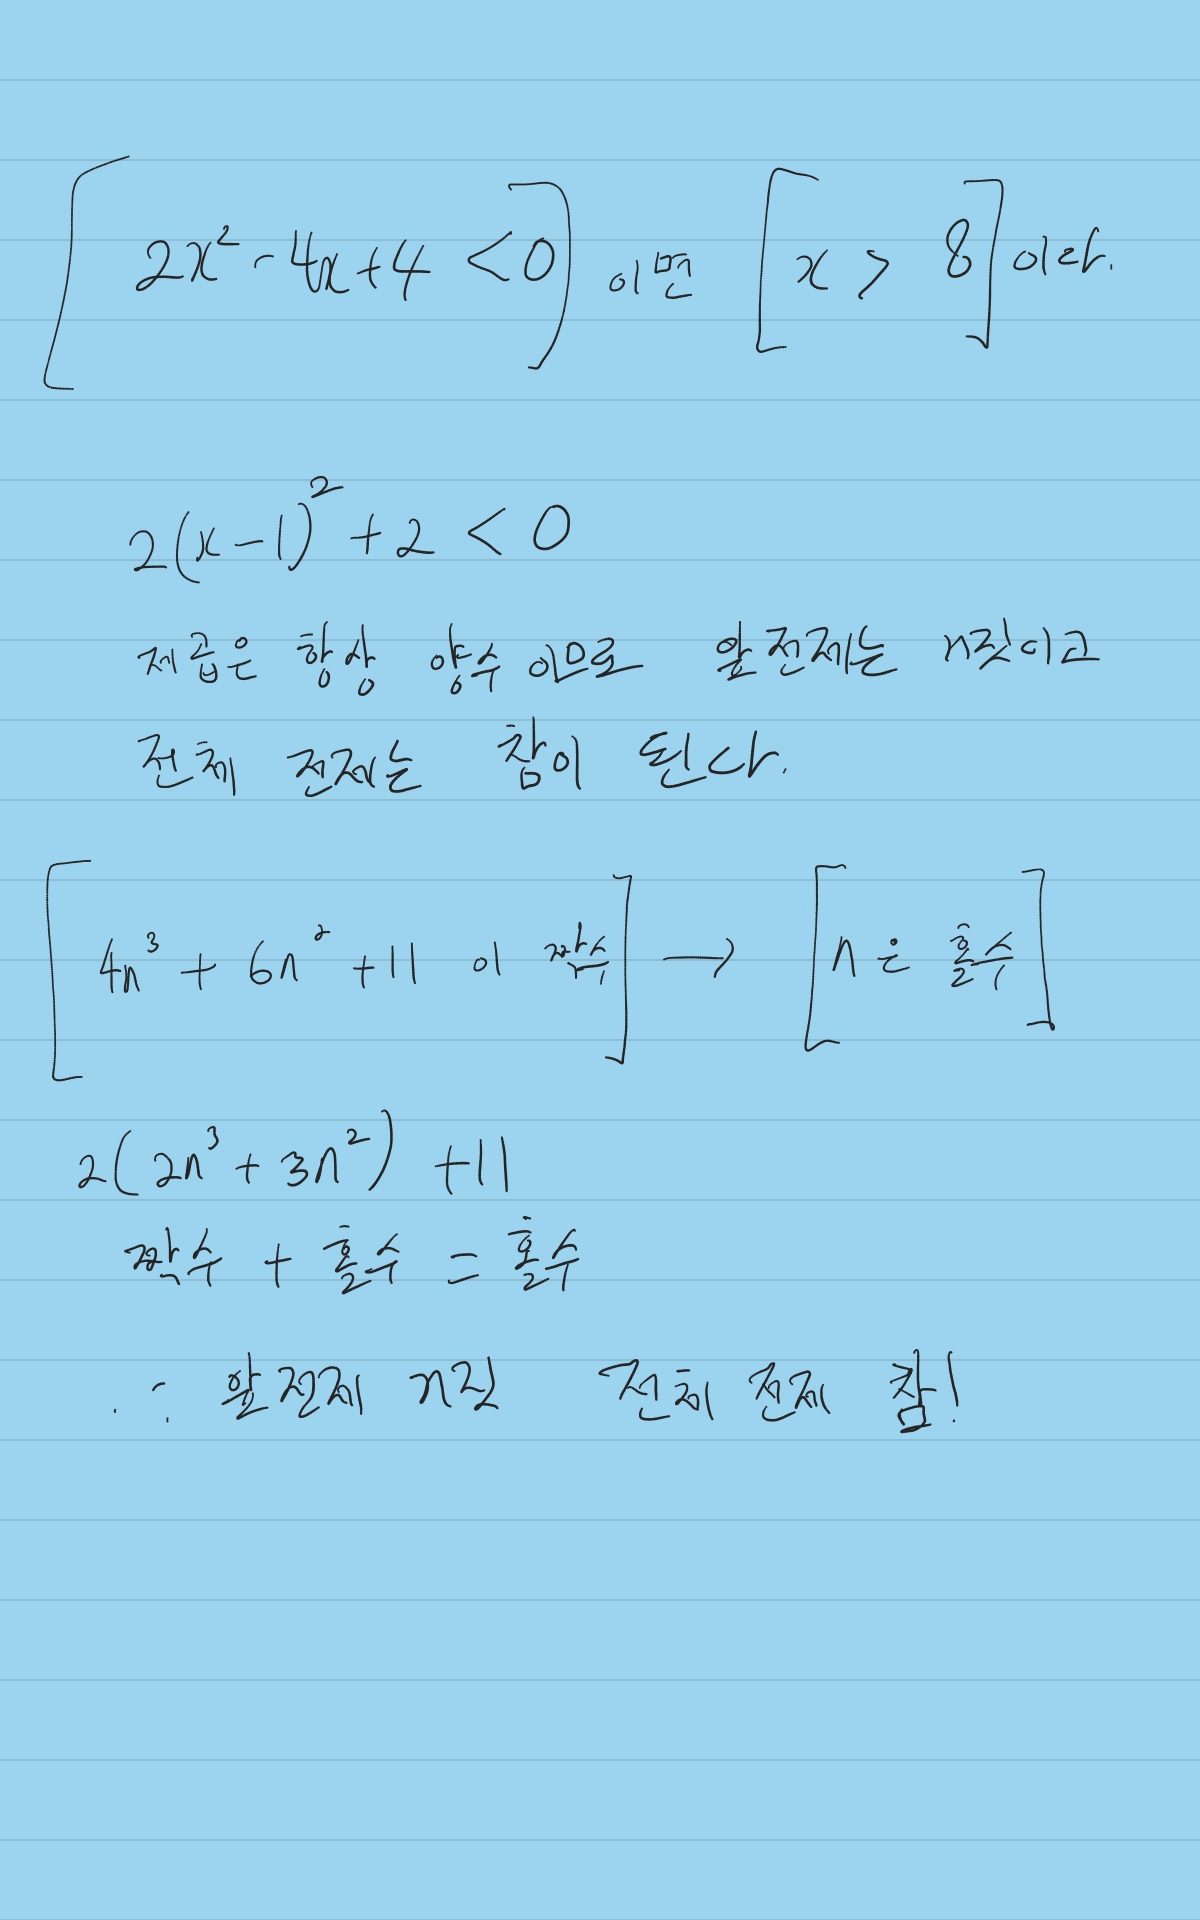 [2x² - 4x + 4 < 0] 이면 [x > 8] 이다.
2(x-1)² + 2 < 0
제곱은 항상 양수 이므로 앞 전제는 거짓이고
전체 전제는 참이 된다.
[4n³ + 6n² + 11 이 짝수] → [n은 홀수]
2(2n³ + 3n²) + 11
짝수 + 홀수 = 홀수
∴ 앞전제 거짓 전체 전제 참!